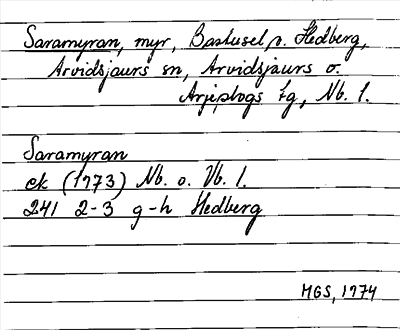 Saramyran, myr, Bastusel p. Hedberg,
Arvidsjaurs sn, Arvidsjaurs o.
Arjeplogs tg, Nb. l.
Saramyran
ek (1973) Nb. o. Vb. l.
241 2-3 g-h Hedberg
MGS, 1974